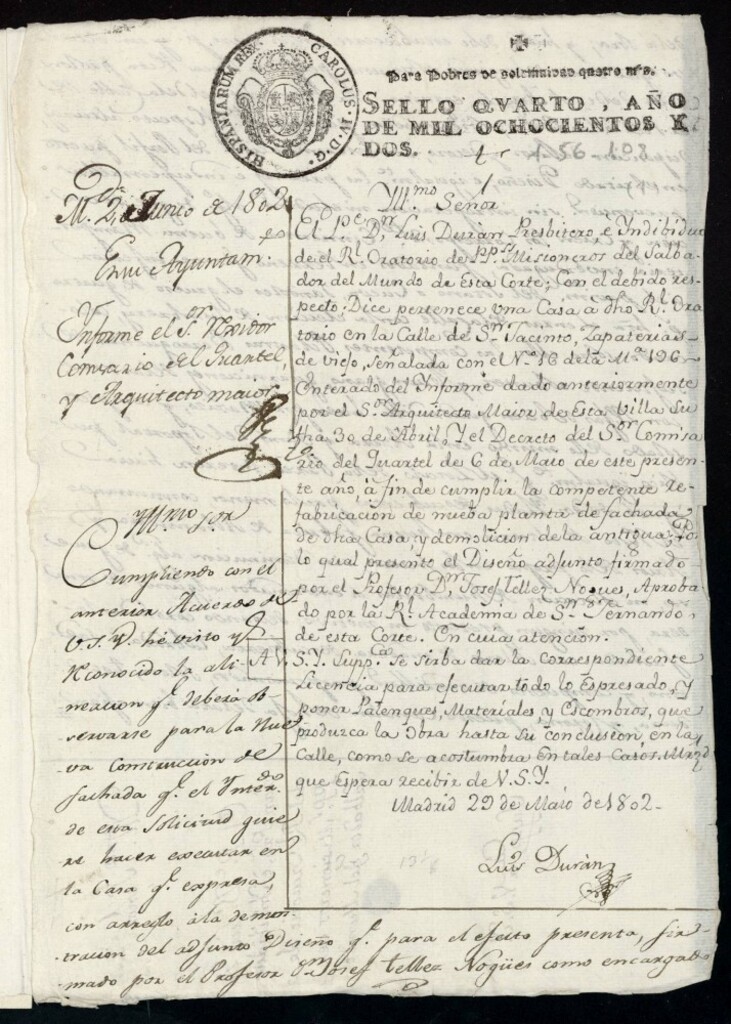 HISPANIARUM REX CAROLUS IV D. G.
Para Pobres de solemnidad quatro mrs.
SELLO QVARTO, AÑO
DE MIL OCHOCIENTOS Y
DOS.
1-56-108
M.d 2, Junio de 1802
En su Ayuntam.to
Ynforme el S.or Rexidor
Comisario del Quartel,
y Arquitecto maior
Yll.mo S.or
Cumpliendo con el
anterior Acuerdo de
V.S.Y. hé visto y
reconocido la ali-
neacion q.e deberá ob-
servarse para la Nue
va Construccion de
fachada q.e el Inter.do
de esta Solicitud quie
re hacer executar en
la Casa q.e expresa,
con arreglo á la demos-
Yll.mo Señor
El P.e D.n Luis Durán Presbitero, é Yndibiduo
de el R.l Oratorio de PP.s Misioneros del Salba-
dor del Mundo de Esta Corte; Con el debido res-
pecto: Dice pertenece una Casa à dho R.l Ora
torio en la Calle de S.n Jacinto, Zapaterias
de viejo, Señalada con el N.o 16 de la M.a 196
Enterado del Ynforme dado anteriormente
por el S.or Arquitecto Maior de Esta Villa Su
fha 30 de Abril, Y el Decreto del S.or Comisa
rio del Quartel de 6 de Maio de este presen-
te año, à fin de cumplir la competente Re-
fabricacion de nueba planta de fachada
de dha Casa y demolicion de la antigua; Po
lo qual presento el Diseño adjunto firmado
por el Profesor D.n Josef Tellez Nogues, Aproba
do por la R.l Academia de S.n Fernando,
de esta Corte. En cuia atencion.
A V.S.Y. Supp.ca se sirba dar la correspondiente
Licencia para efecutar todo lo Espresado, y
poner Palenques, Materiales, y Escombros, que
produzca la Obra hasta su conclusion en la
Calle, como se acostumbra en tales Casos. Mrzd
que Espera recibir de V.S.Y.
Madrid 29 de Maio de 1802-
Luis Durán
tracion del adjunto Diseño q.e para el efecto presenta, fir-
mado por el Profesor D.n Josef Tellez Nogües como encargado